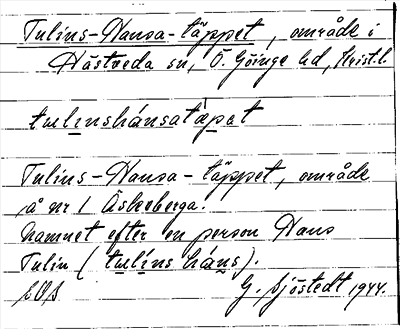 Tulins-Hansa-täppet, område i
Hästveda sn, Ö. Göinge hd, Krist.l.
tulinshánsatæ̀pat
Tulins-Hansa-täppet, område
å nr 1 Äskeberga.
Namnet efter en person Hans
Tulin (tulíns háns).
G. Sjöstedt 1944.